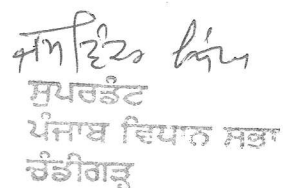 ਜਸਵਿੰਦਰ ਸਿੰਘ
ਸੁਪਰਡੰਟ
ਪੰਜਾਬ ਵਿਧਾਨ ਸਭਾ
ਚੰਡੀਗੜ੍ਹ